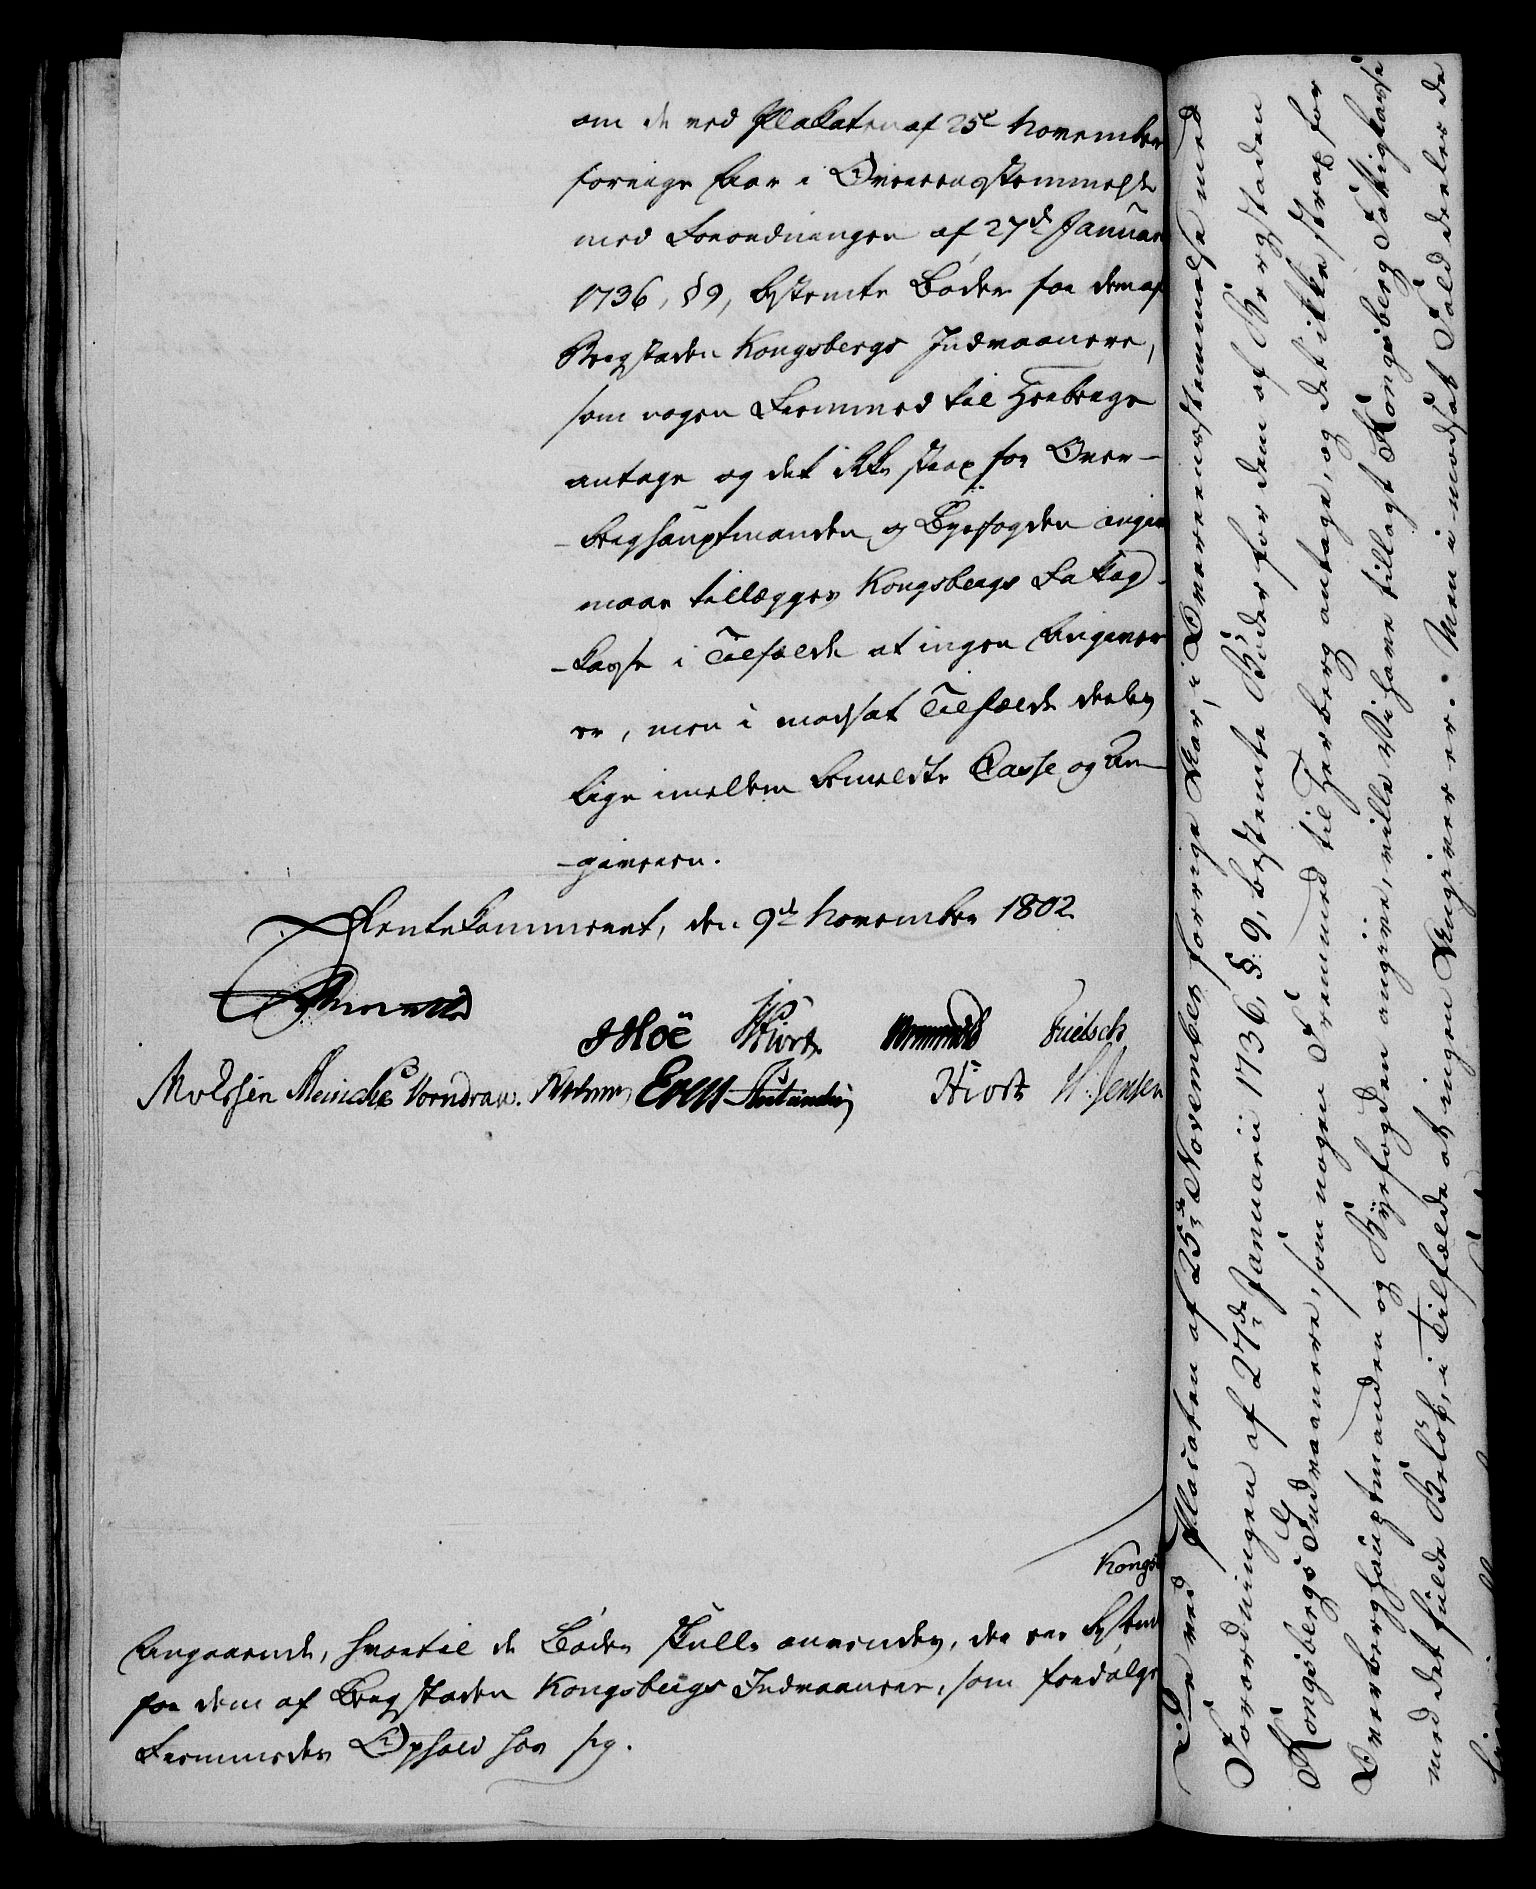 om de ved Plakaten af 25de November
forrige Aar i Overeensstemmelse
med Forordningen af 27de Januar
1736, § 9, bestemte Bøder for dem af
Bergstaden Kongsbergs Indvaanere,
som nogen Fremmed til Herberge
antage og det ikke strax for Over-
-berghauptmanden og Byefogden angive
maae tillægges Kongsbergs Fattig-
-kasse i Tilfælde at ingen Angiver
er, men i modsat Tilfælde deeles
lige imellem bemeldte Casse og An-
-giveren.
Rentekammeret, den 9de November 1802.
Moë Hiort Frietsch
Meinche Vorndran. Hiort W. Jensen
Kongs
Angaaende, hvortil de Bøder skulle anvendes, der ere bestemt
for dem af Bergstaden Kongsbergs Indvaanere, som fordølge
Fremmedes Ophold hos sig.
De ved Placaten af 25de November forrige Aar, i Overeensstemmelse med
Forordningen af 27de Januarii 1736, §: 9, bestemte Bøder for dem af Bergstaden
Kongsbergs Indvaanere, som nogen Fremmed til Herberg antage, og det ikke strax for
Overberghauptmanden og Byefogden angive, ville Vi have tillagt Kongsberg Fattigkasse
med det fulde Beløb, i Tilfælde at ingen Angiver er. Men i modsat Fald deeles de